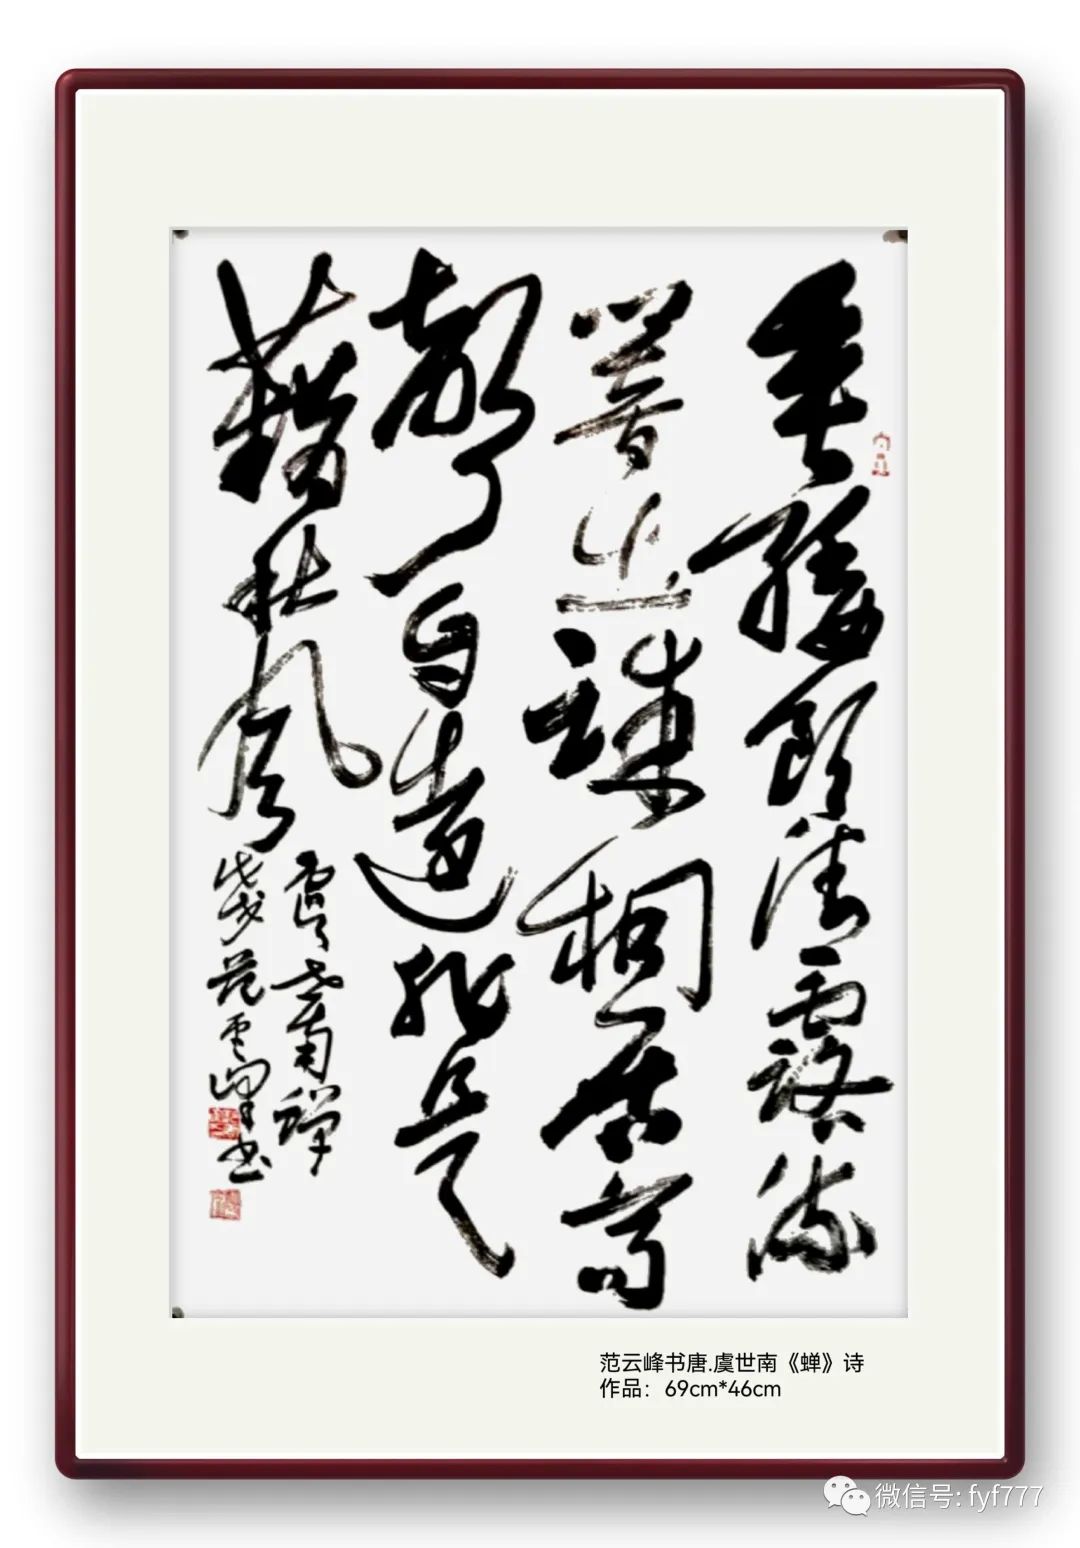 垂緌飲清露流
響出疎桐居高
聲自遠非是
藉秋風
虞世南蟬
范雲峰书
范云峰书唐.虞世南《蝉》诗
作品：69cm*46cm
微信号: fyf777